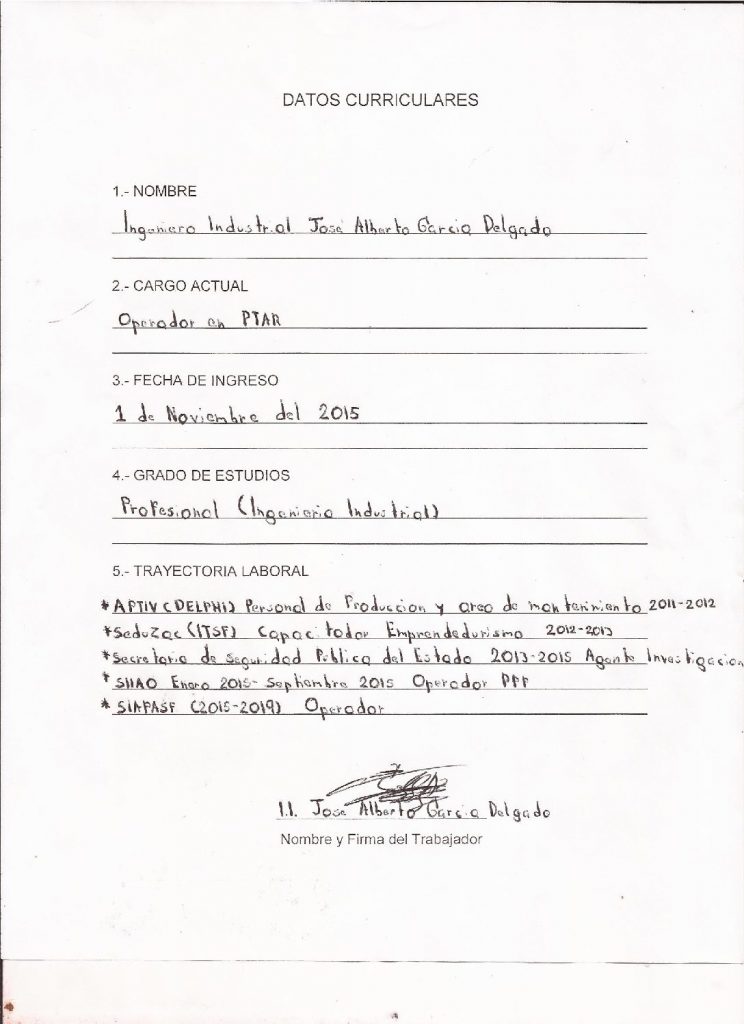 DATOS CURRICULARES
1.- NOMBRE
Ingeniero Industrial José Alberto Garcia Delgado
2.- CARGO ACTUAL
Operador en PTAR
3.- FECHA DE INGRESO
1 de Noviembre del 2015
4.- GRADO DE ESTUDIOS
Profesional (Ingenieria Industrial)
5.- TRAYECTORIA LABORAL
* APTIV (DELPHI) Personal de Produccion y area de mantenimiento 2011-2012
* Seduzac (ITSF) Capacitador Emprendedurismo 2012-2013
* Secretaria de Seguridad Pública del Estado 2013-2015 Agente Investigacion
* Enero 2015- Septiembre 2015 Operador
* SIAPASF (2015-2019) Operador
I.I. Jose Alberto Garcia Delgado
Nombre y Firma del Trabajador